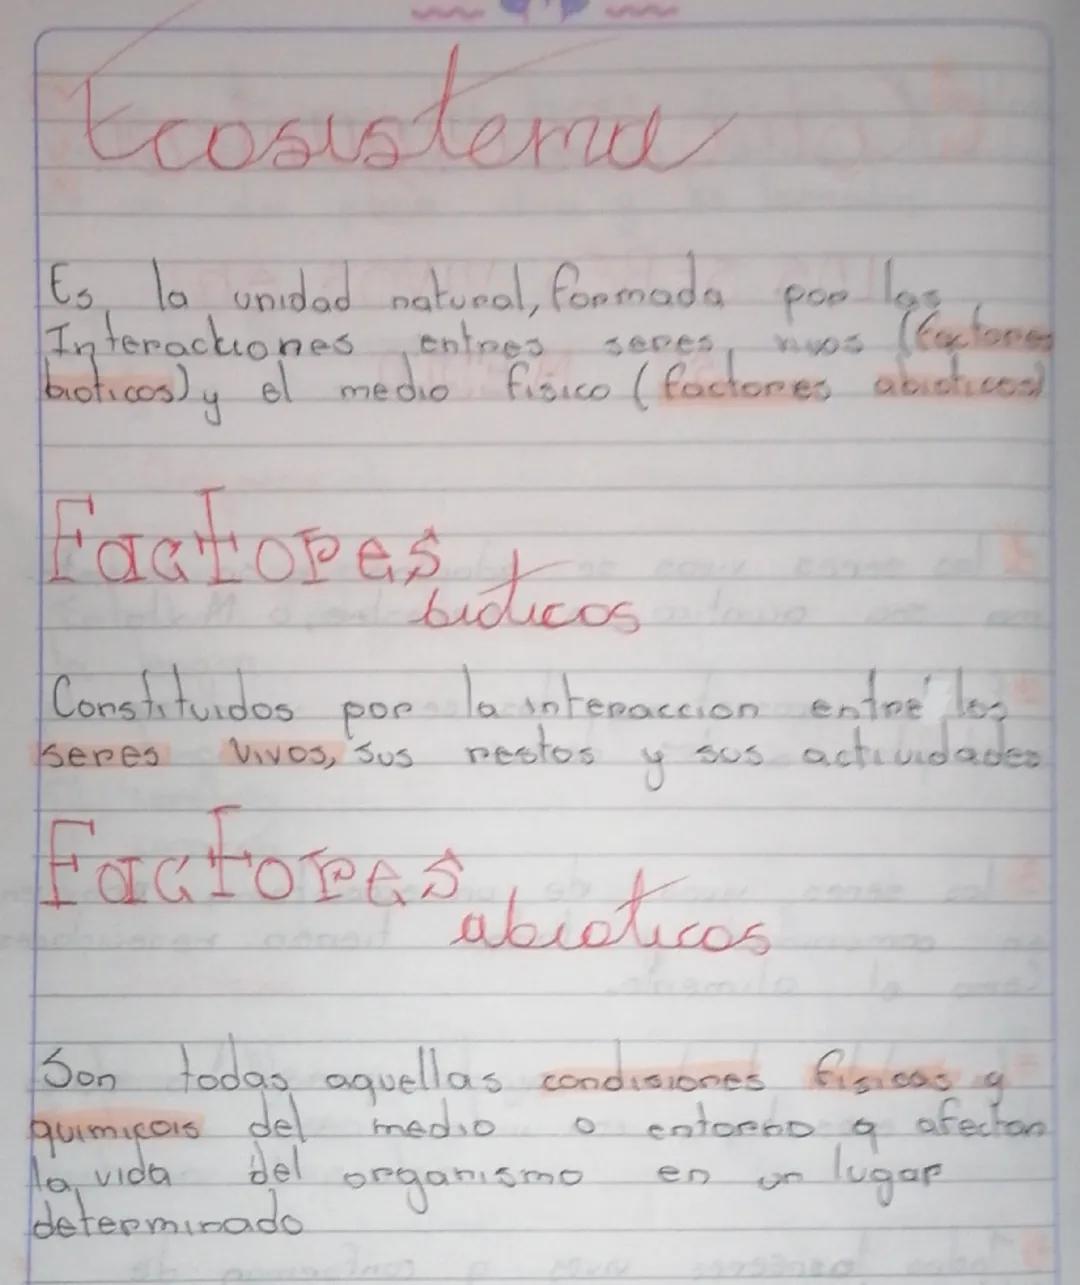 Ecosistema
Es la unidad natural, formada por las
Interacciones entres seres vivos (factores
bioticos) y el medio fisico (factores abioticos)
Factores
bioticos
Constituidos por la interaccion entre los
seres vivos, sus restos y sus actividades
Factores
abioticos
Son todas aquellas condisiones fisicas y
quimicas del medio o entorno q afectan
la vida del organismo en un lugar
determinado